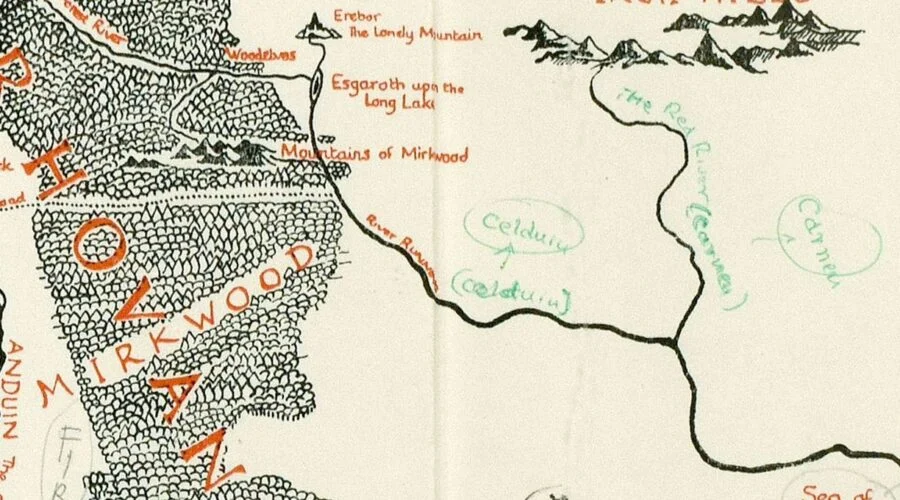 Erebor
The Lonely Mountain
Woodelves
Esgaroth upon the
Long Lake
Mountains of Mirkwood
River Running
Celduin
(Celduin)
The Red River (Carnen)
Carnen
RHOVAN
MIRKWOOD
ANDUIN The
Sea of